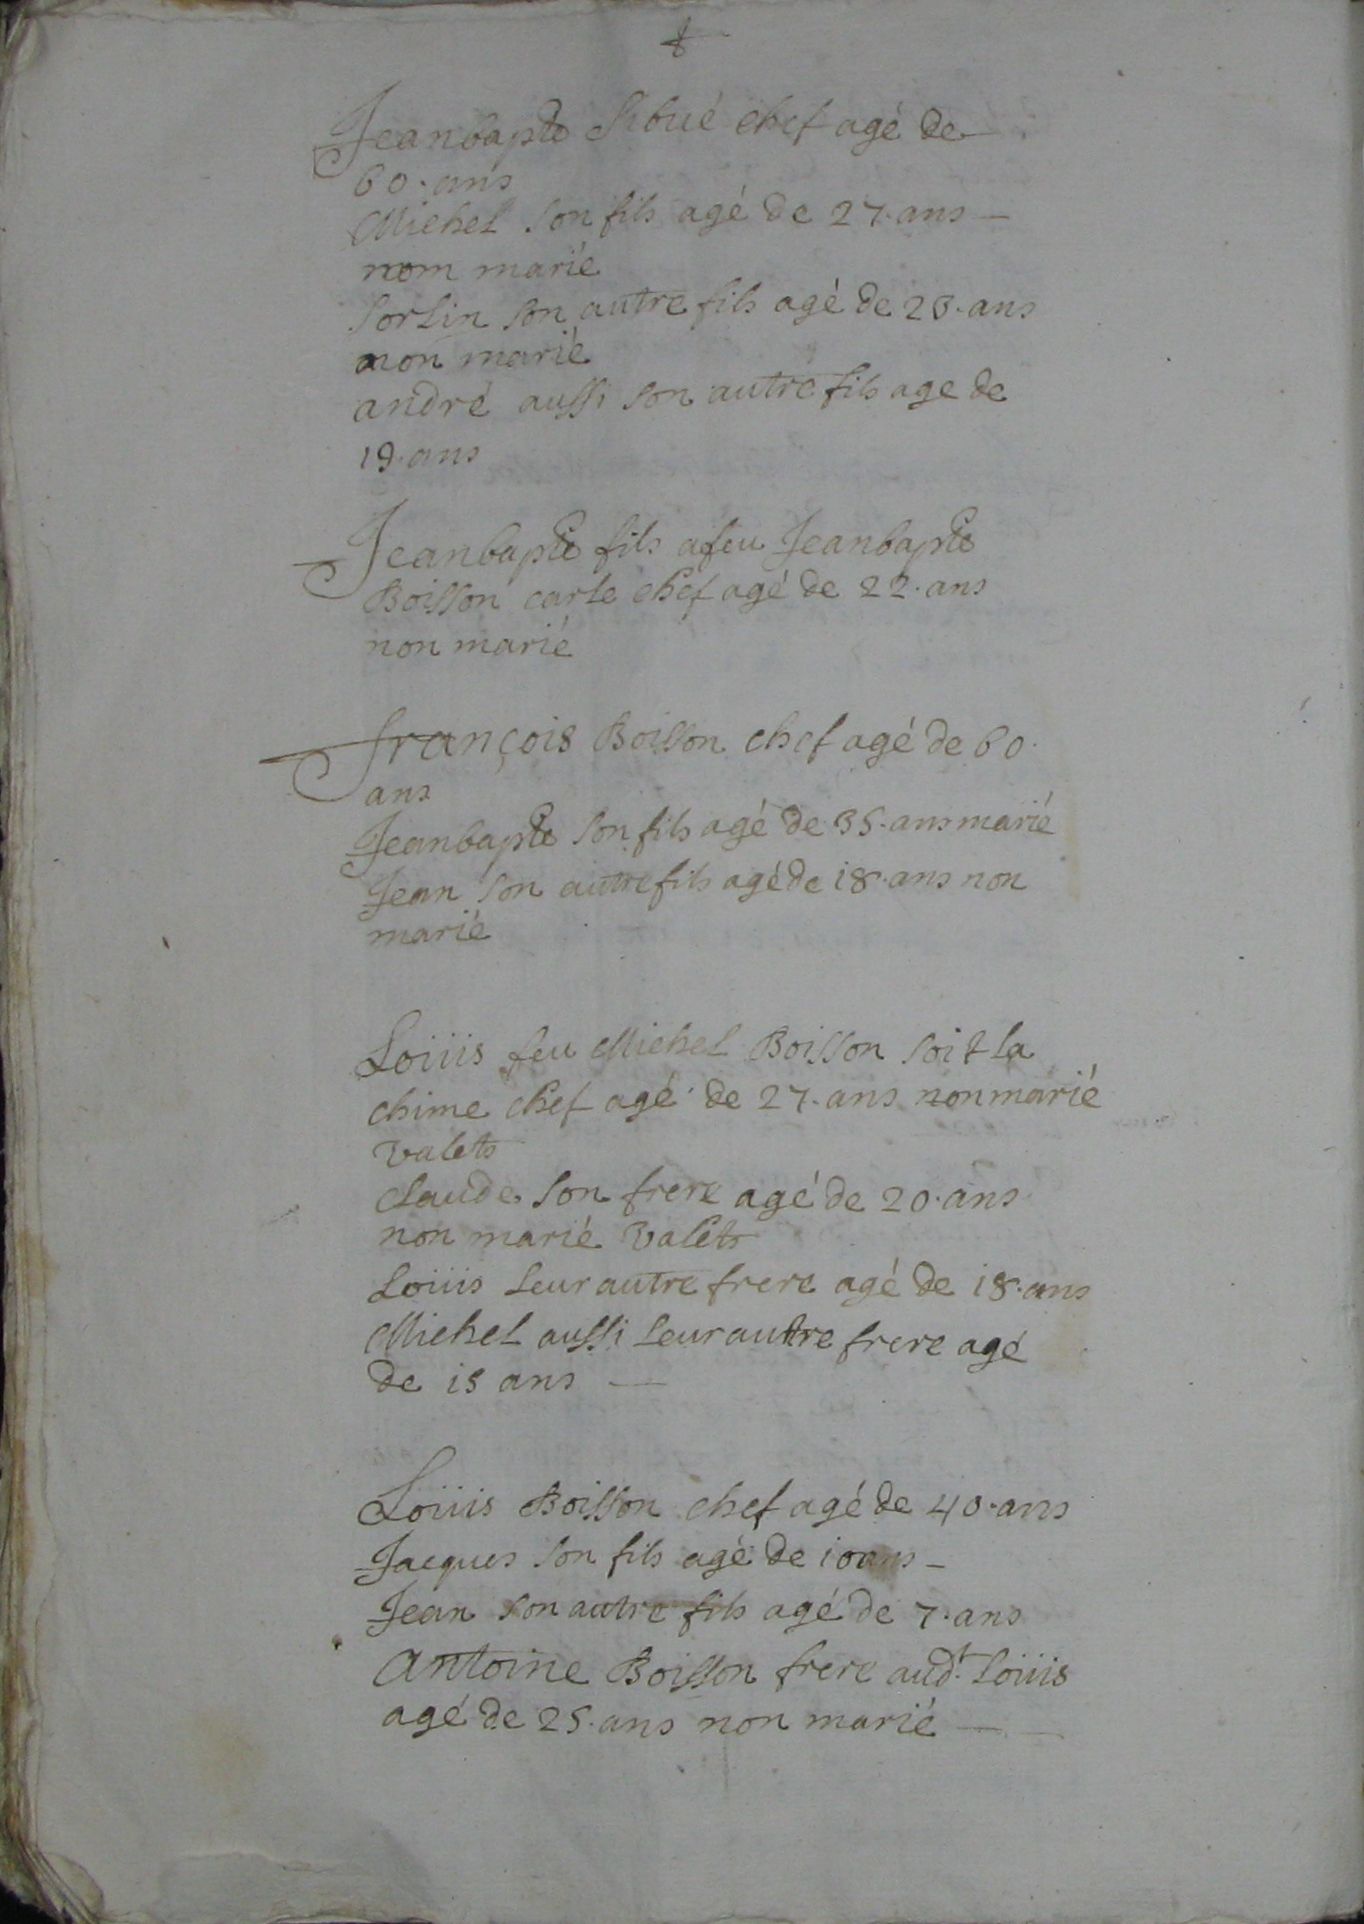 Jeanbapte Siboué chef agé de
60. ans
Michel son fils agé de 27. ans
nom marié
Sorlin son autre fils agé de 23. ans
non marié
andré aussi son autre fils age de
19. ans
Jeanbapte fils a feu Jeanbapte
Boisson carle chef agé de 22. ans
non marié
françois Boisson chef agé de 60.
ans
Jeanbapte son fils agé de 35. ans marié
Jean son autre fils agé de 18. ans non
marié
Loüis feu Michel Boisson soit la
chime chef agé de 27. ans non marié
valets
Claude son frere agé de 20. ans
non marié valets
Loüis leur autre frere agé de 18. ans
Michel aussi leur autre frere agé
de 15 ans
Loüis Boisson chef agé de 40. ans
Jacques son fils agé de 10 ans
Jean son autre fils agé de 7. ans
Antoine Boisson frere aud.t Loüis
agé de 25. ans non marié